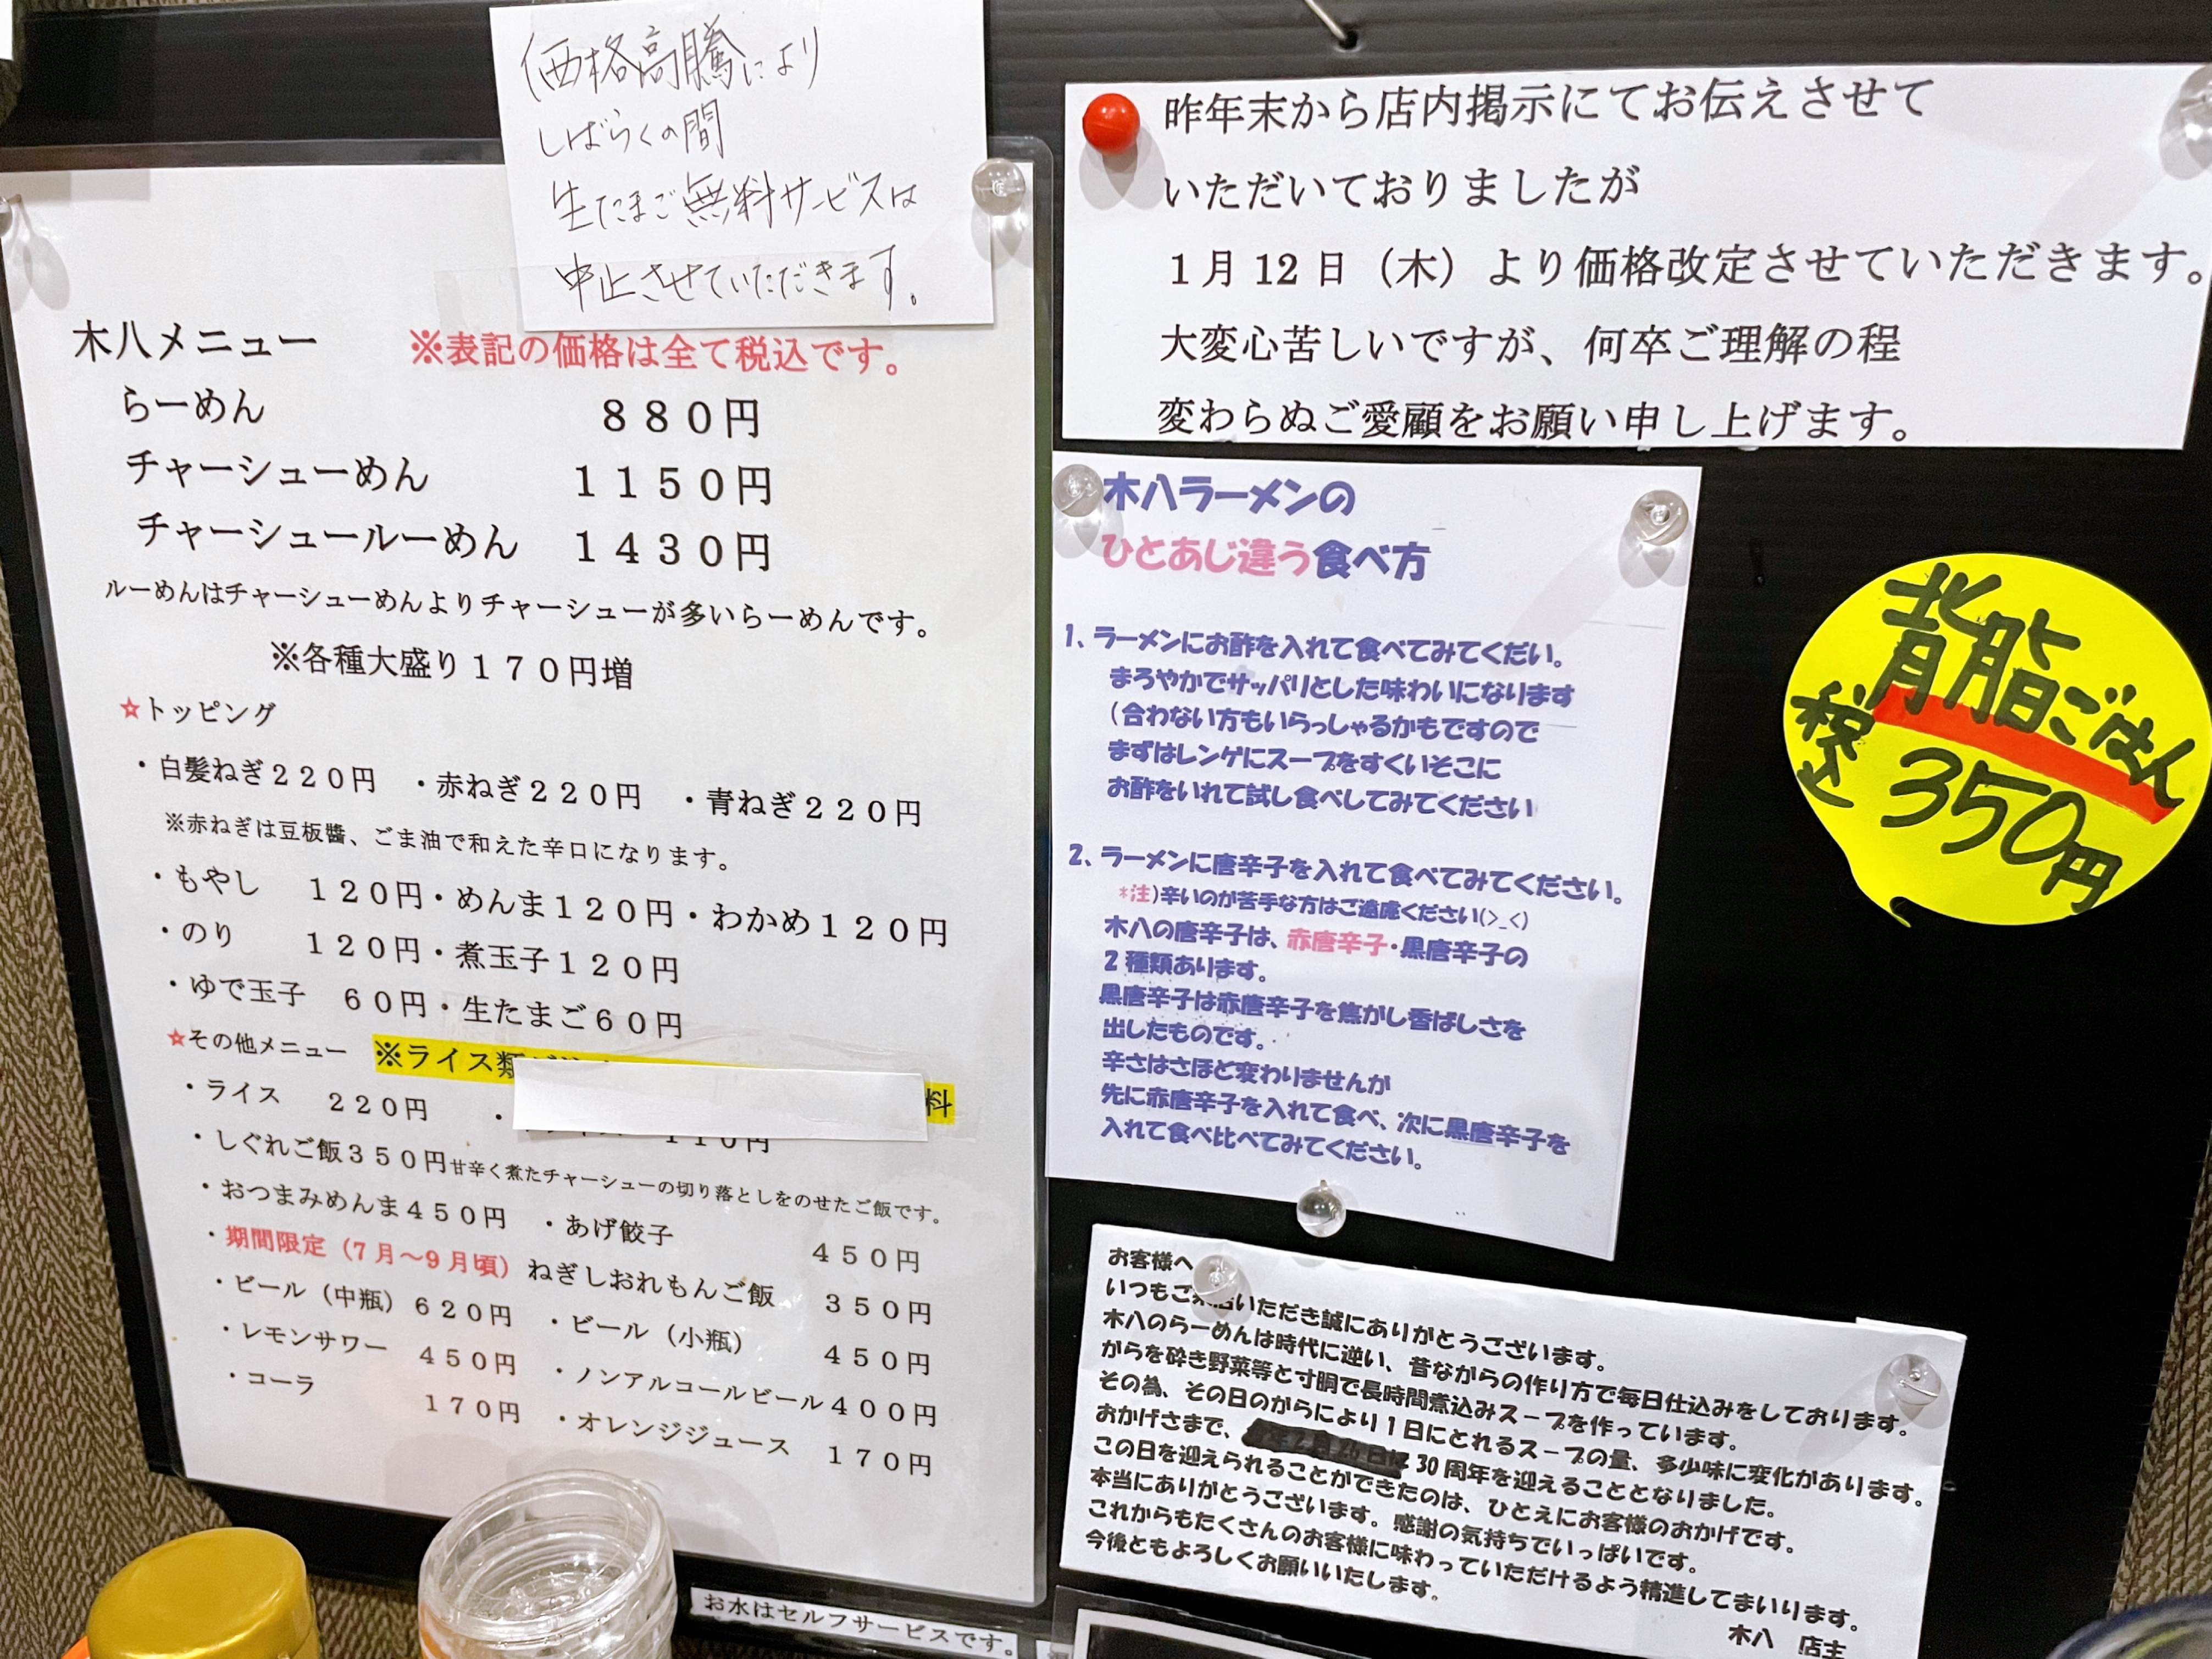 価格高騰により
しばらくの間
生たまご無料サービスは
中止させていただきます。
木八メニュー ※表記の価格は全て税込です。
らーめん ８８０円
チャーシューめん １１５０円
チャーシュールーめん １４３０円
ルーめんはチャーシューめんよりチャーシューが多いらーめんです。
※各種大盛り１７０円増
☆トッピング
・白髪ねぎ２２０円 ・赤ねぎ２２０円 ・青ねぎ２２０円
※赤ねぎは豆板醬、ごま油で和えた辛口になります。
・もやし １２０円・めんま１２０円・わかめ１２０円
・のり １２０円・煮玉子１２０円
・ゆで玉子 ６０円・生たまご６０円
☆その他メニュー ※ライス類 料
・ライス ２２０円 ・ １１０円
・しぐれご飯３５０円甘辛く煮たチャーシューの切り落としをのせたご飯です。
・おつまみめんま４５０円 ・あげ餃子 ４５０円
・期間限定（７月～９月頃）ねぎしおれもんご飯 ３５０円
・ビール（中瓶）６２０円 ・ビール（小瓶） ４５０円
・レモンサワー ４５０円 ・ノンアルコールビール４００円
・コーラ １７０円 ・オレンジジュース １７０円
お水はセルフサービスです。
昨年末から店内掲示にてお伝えさせて
いただいておりましたが
１月 12 日（木）より価格改定させていただきます。
大変心苦しいですが、何卒ご理解の程
変わらぬご愛顧をお願い申し上げます。
木八ラーメンの
ひとあじ違う食べ方
1、ラーメンにお酢を入れて食べてみてくだい。
まろやかでサッパリとした味わいになります
（合わない方もいらっしゃるかもですので
まずはレンゲにスープをすくいそこに
お酢をいれて試し食べしてみてください
2、ラーメンに唐辛子を入れて食べてみてください。
*注)辛いのが苦手な方はご遠慮ください(>_<)
木八の唐辛子は、赤唐辛子・黒唐辛子の
2 種類あります。
黒唐辛子は赤唐辛子を焦がし香ばしさを
出したものです。
辛さはさほど変わりませんが
先に赤唐辛子を入れて食べ、次に黒唐辛子を
入れて食べ比べてみてください。
背脂ごはん
税込 350円
お客様へ
いつもご来店いただき誠にありがとうございます。
木八のらーめんは時代に逆い、昔ながらの作り方で毎日仕込みをしております。
がらを砕き野菜等と寸胴で長時間煮込みスープを作っています。
その為、その日のがらにより１日にとれるスープの量、多少味に変化があります。
おかげさまで、 30 周年を迎えることとなりました。
この日を迎えられることができたのは、ひとえにお客様のおかげです。
本当にありがとうございます。感謝の気持ちでいっぱいです。
これからもたくさんのお客様に味わっていただけるよう精進してまいります。
今後ともよろしくお願いいたします。
木八 店主